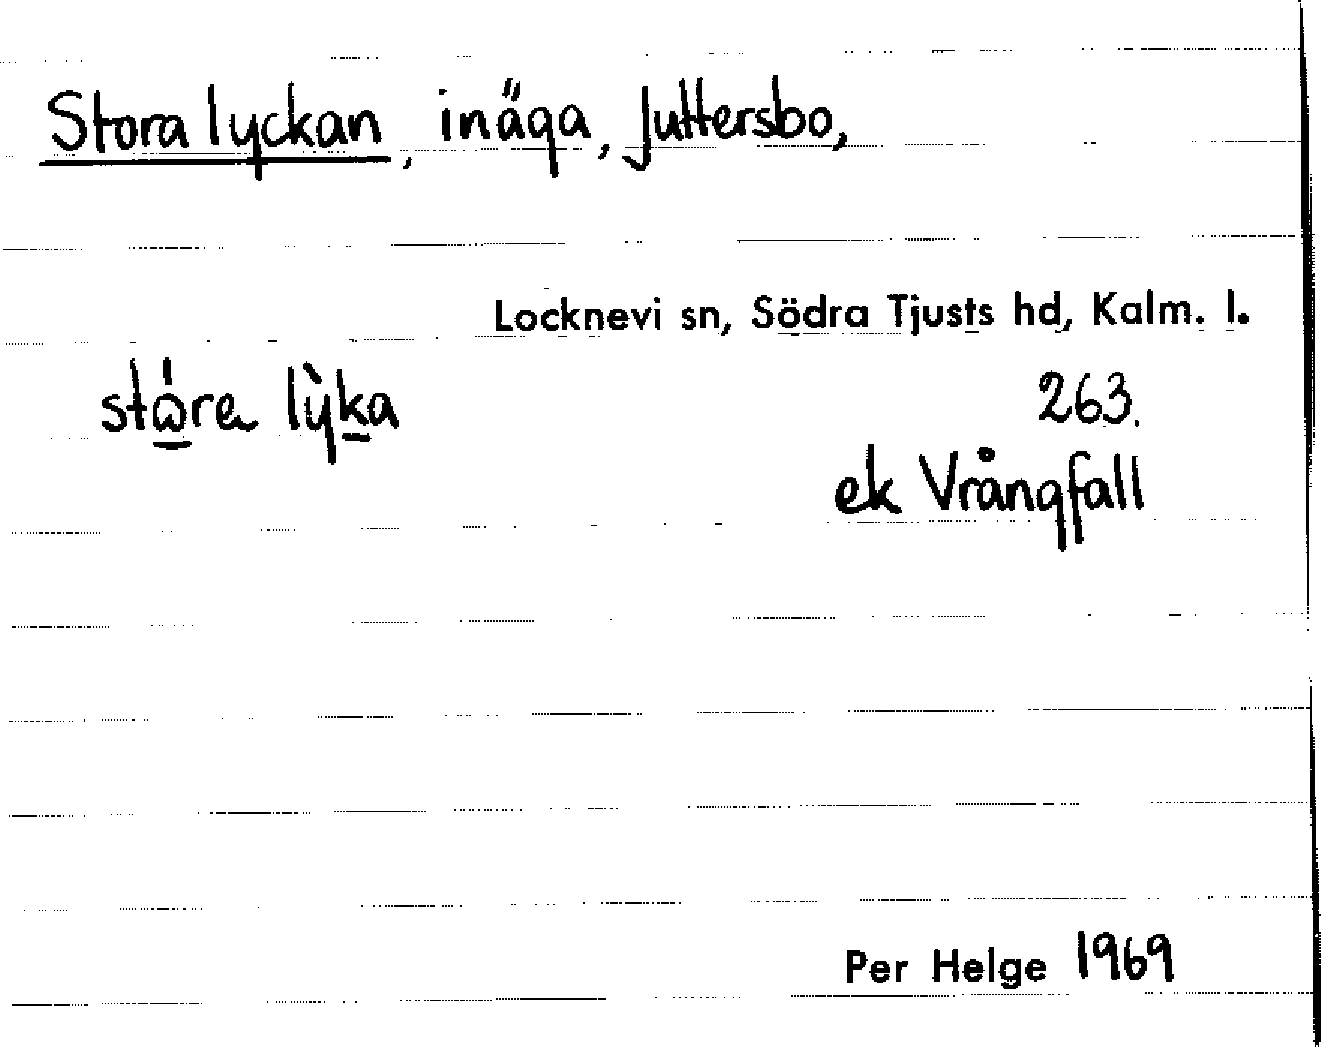 Stora lyckan, inäga, Juttersbo,
Locknevi sn, Södra Tjusts hd, Kalm. l.
263.
ek Vrångfall
Per Helge 1969